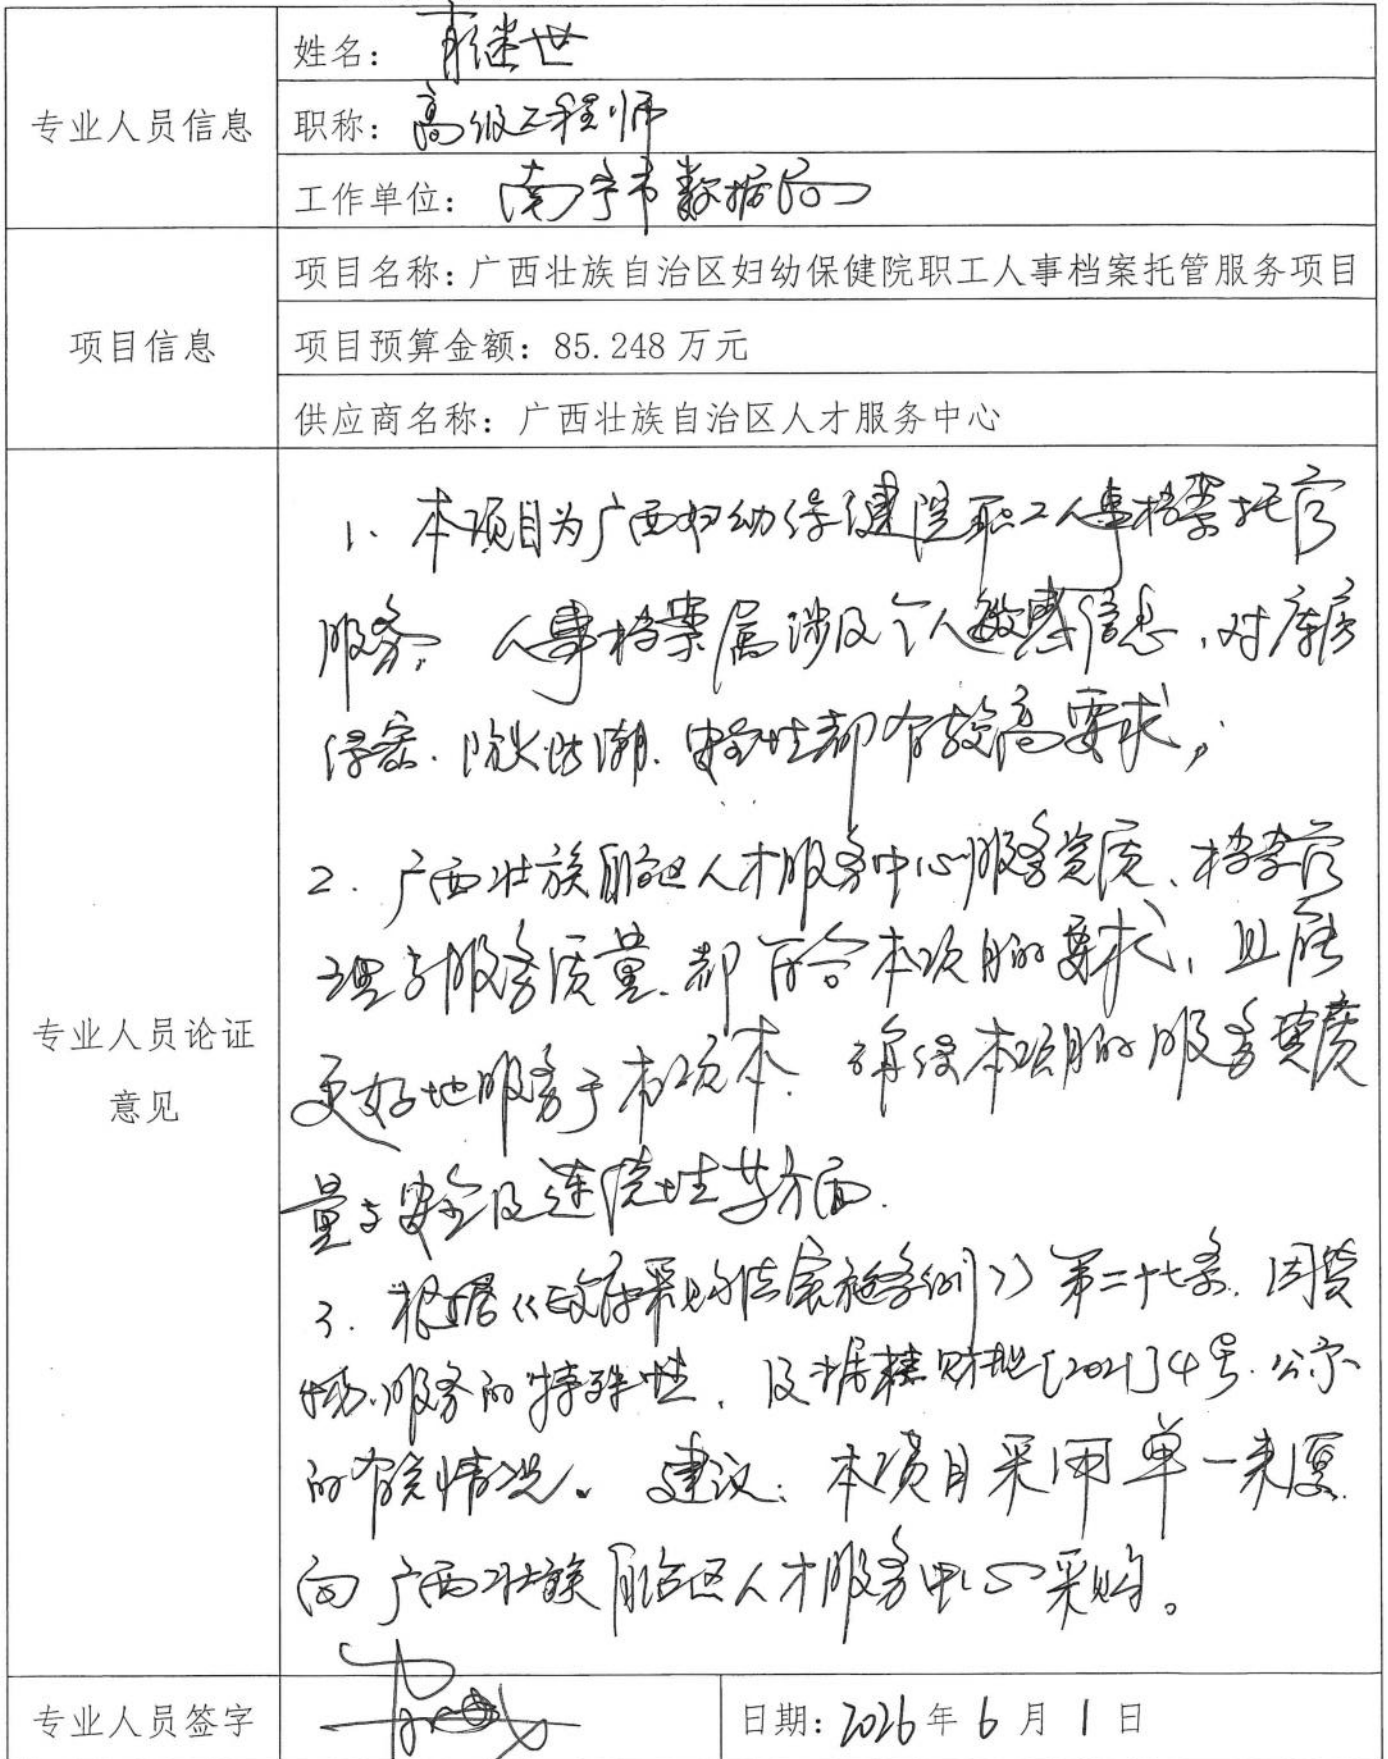 专业人员信息
姓名：继世
职称：高级工程师
工作单位：南宁市数据局
项目信息
项目名称：广西壮族自治区妇幼保健院职工人事档案托管服务项目
项目预算金额：85.248万元
供应商名称：广西壮族自治区人才服务中心
专业人员论证
意见
1、本项目为广西妇幼保健院职工人事档案托管
服务，人事档案属涉及个人敏感信息，对库房
保密、防火防潮、安全性都有较高要求，
2.广西壮族自治区人才服务中心服务资质、档案管
理与服务质量、都符合本项目的要求，且能
更好地服务于本项本、确保本项目的服务质
量与安全及连续性等方面.
3.根据《政府采购法实施条例》第二十七条，因货
物、服务的特殊性，及据桂财[2021]4号公示
的有关情况。建议：本项目采用单一来源
向广西壮族自治区人才服务中心采购。
专业人员签字
日期：2026年6月1日